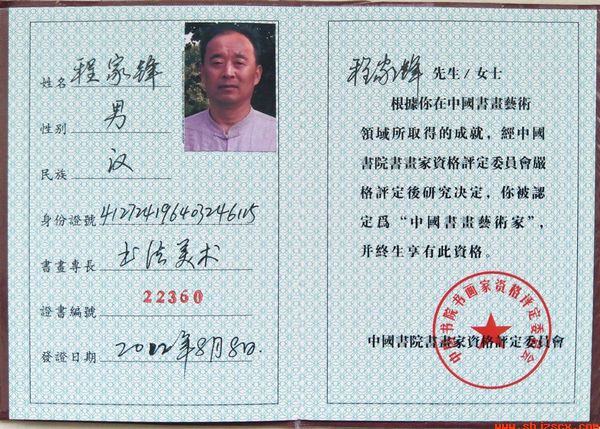 姓名 程家锋
性别 男
民族 汉
身份證號 412724196403246115
書畫專長 书法美术
證書編號 22360
發證日期 2012年8月8日.
程家锋 先生/女士
根據你在中國書畫藝術
領域所取得的成就，經中國
書院書畫家資格評定委員會嚴
格評定後研究决定，你被認
定爲“中國書畫藝術家”，
并終生享有此資格。
中国书院书画家资格评定委员会
中國書院書畫家資格評定委員會